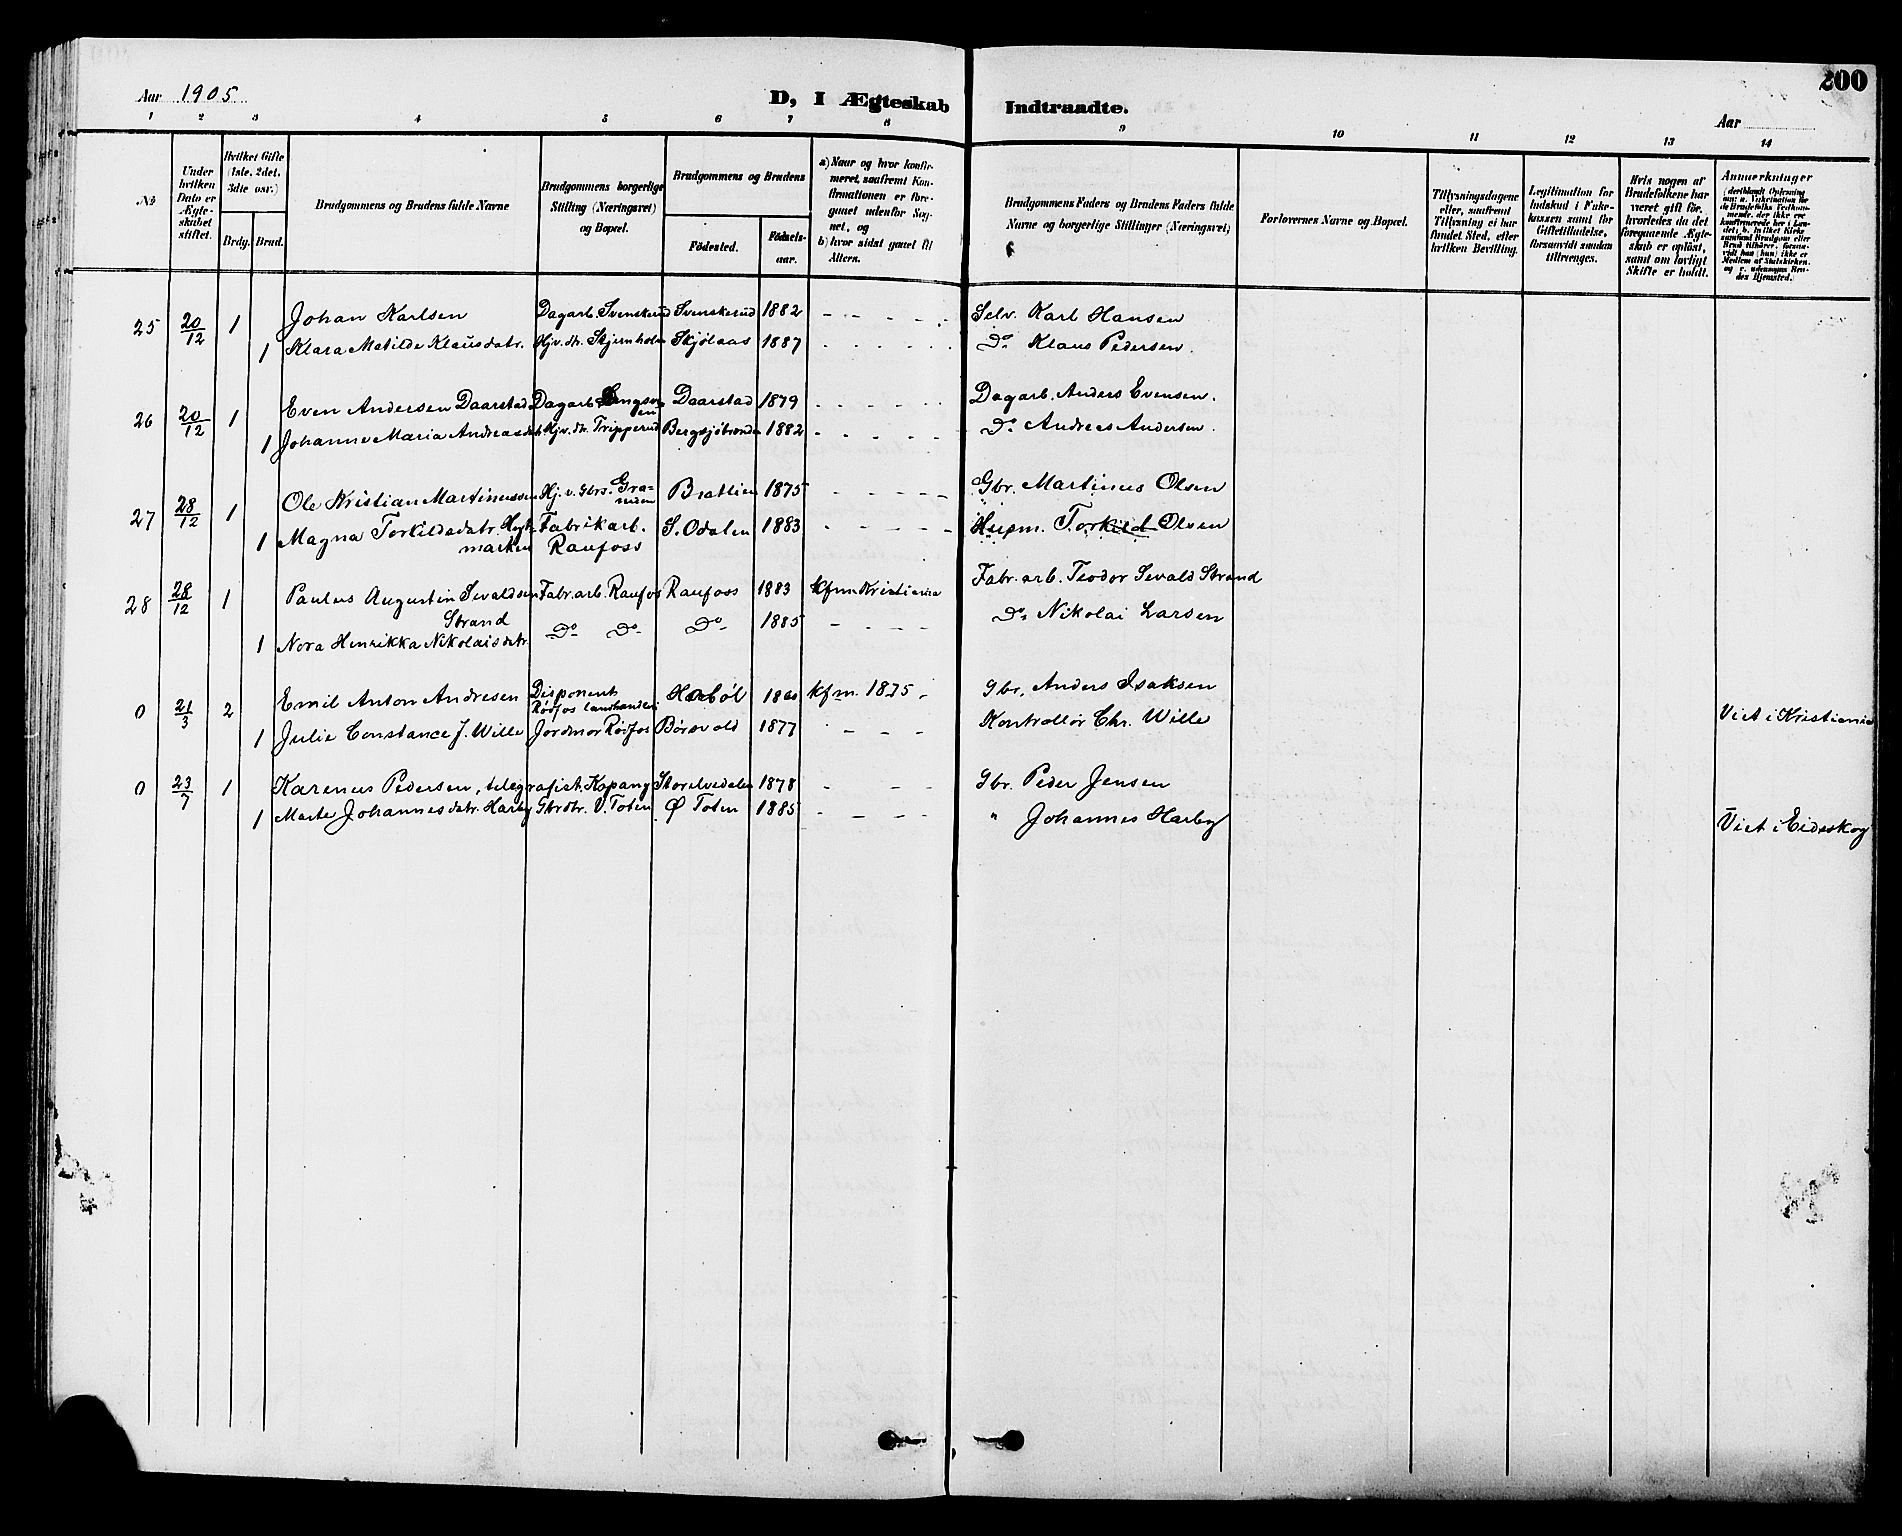 200
Aar 1905
D, I Ægteskab Indtraadte.
Aar
1 2 3 4 5 6 7 8 9 10 11 12 13 14
No
Under hvilken Dato er Ægteskabet stiftet.
Hvilket Gifte (1ste, 2det, 3die osv.)
Brdg. Brud.
Brudgommens og Brudens fulde Navne
Brudgommens borgerlige Stilling (Næringsvei) og Bopæl.
Brudgommens og Brudens
Födested.
Födsels-aar.
a) Naar og hvor konfirmeret, saafremt Konfirmationen er foregaaet udenfor Sognet, og
b) hvor sidst gaaet til Alters.
Brudgommens Faders og Brudens Faders fulde Navne og borgerlige Stillinger (Næringsvei)
Forlovernes Navne og Bopæl.
Tillysningsdagene eller, saafremt Tillysning ei har fundet Sted, efter hvilken Bevilling.
Legitimation for Indskud i Enkekassen samt for Giftetilladelse, forsaavidt saadan tiltrænges.
Hvis nogen af Brudefolkene har været gift för, hvorledes da det foregaaende Ægteskab er oplöst, samt om lovligt Skifte er holdt.
Anmærkninger
25 20/12 1 Johan Karlsen Dagarb. Svenskerud Svenskerud 1882 - - - - Selv. Karl Hansen
1 Klara Matilde Klausdatr. Hjv. dr. Skjernholen Skjölaas 1887 Do Klaus Pedersen.
26 20/12 1 Even Andersen Daarstad Dagarb. Daarstad 1879 - - - - Dagarb. Anders Evensen.
1 Johanne Maria Andreasdatr Hjv. dr. Tripperud 1882 - - - - Do Andreas Andersen.
27 28/12 1 Ole Kristian Martinussen Hj. v. Gbrs. Bratlien 1875 - - - - Gbr. Martinus Olsen
1 Magna Torkildsdatr. Hegt-marken Fabrikarb. Raufoss S. Odalen 1883 - - - - Husm. Torkild Olsen
28 28/12 1 Paulus Augustin Sevaldsen Strand Fabr. arb. Raufos Raufoss 1883 kfm. Kristiania Fabr. arb. Teodor Sevald Strand
1 Nora Henrikka Nikolaisdatr. Do Do Do 1885 - - - - Do Nikolai Larsen
0 21/3 2 Emil Anton Andresen Disponent Rödfos landhandleri kfm. 1875 - Gbr. Anders Isaksen
1 Julie Constance J. Wille Jordmor Rödfos Börsvold 1877 - - - Kontrollör Chr. Wille Viet i Kristiania
0 23/7 1 Karenus Pedersen, telegrafist, Kopang Storelvedalen 1878 - - Gbr. Peder Jensen
1 Marte Johannesdatr. Harby Gbrdtr. V. Toten Ø Toten 1885 - - - - " Johannes Harby Viet i Eidsskog